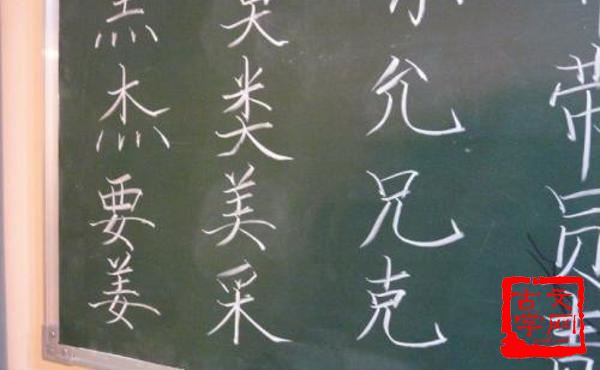 杰要姜
类美采
允兄克
带员
古文
字网